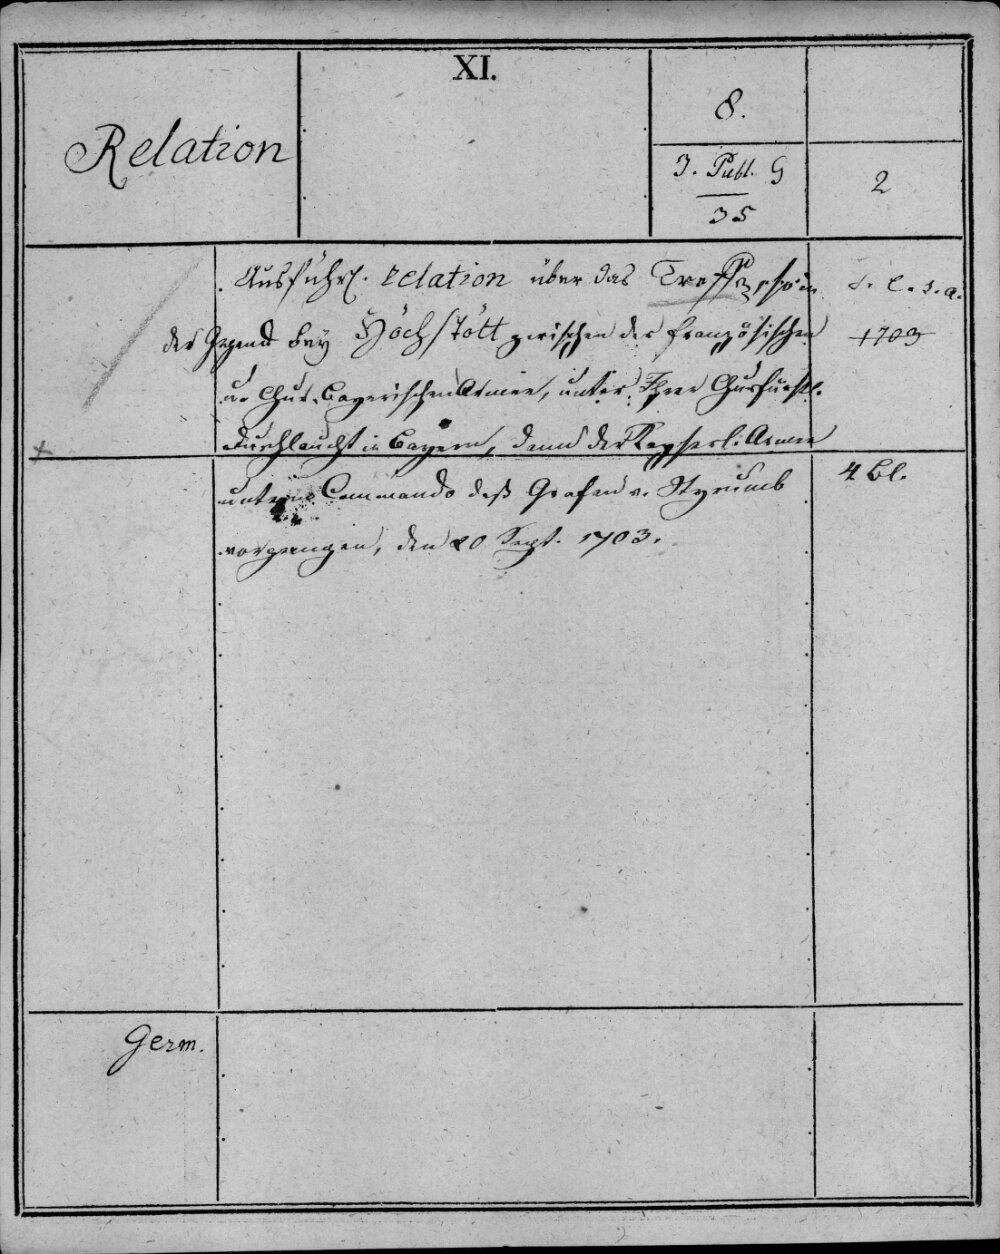 XI.
Relation
8.
J. Publ. G
35
2
Ausführl. relation über das Treffen, so in
der Gegend bey Höchstött zwischen der französischen
u. Chur-Bayerischen Armee, unter Ihrer Churfürstl.
Durchlaucht in Bayern, dann der Kayserl. Armee
unterm Commando deß Grafen v. Styrumb
vorgangen, den 20 Sept. 1703.
s. l. s. a.
1703
4 Bl.
Germ.